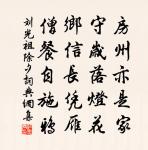 房州亦是家
守歲落燈花
鄉信長凭雁
僧餐自施鴉
刘光祖除夕詞典網